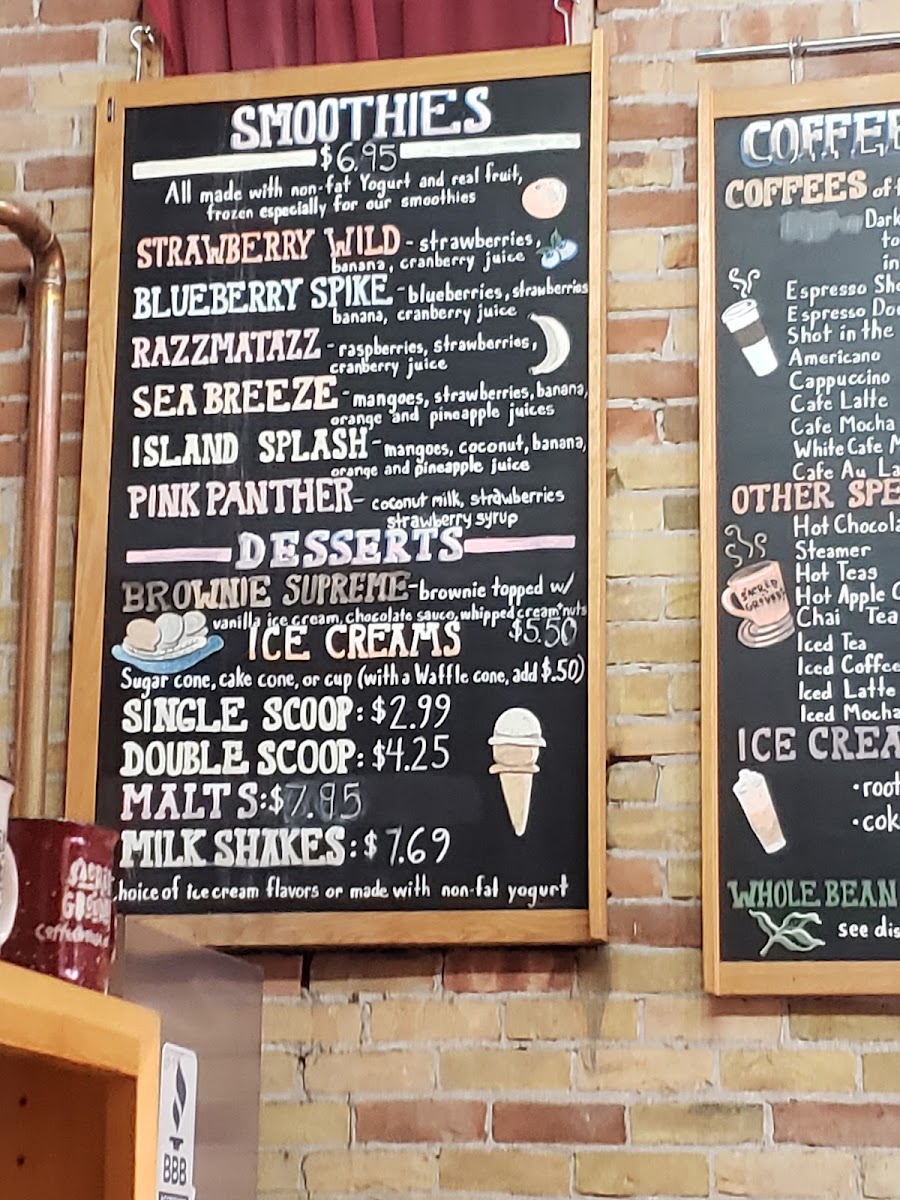 SMOOTHIES
$6.95
All made with non-fat Yogurt and real fruit,
frozen especially for our smoothies
STRAWBERRY WILD - strawberries,
banana, cranberry juice
BLUEBERRY SPIKE - blueberries, strawberries
banana, cranberry juice
RAZZMATAZZ - raspberries, strawberries,
cranberry juice
SEA BREEZE - mangoes, strawberries, banana,
orange and pineapple juices
ISLAND SPLASH - mangoes, coconut, banana,
orange and pineapple juice
PINK PANTHER - coconut milk, strawberries
strawberry syrup
DESSERTS
BROWNIE SUPREME - brownie topped w/
vanilla ice cream, chocolate sauce, whipped cream nuts
$5.50
ICE CREAMS
Sugar cone, cake cone, or cup (with a Waffle cone, add $.50)
SINGLE SCOOP: $2.99
DOUBLE SCOOP: $4.25
MALTS: $7.95
MILK SHAKES: $7.69
choice of ice cream flavors or made with non-fat yogurt
COFFEE
COFFEES of
Dark
to
in
Espresso Sho
Espresso Dou
Shot in the
Americano
Cappuccino
Cafe Latte
Cafe Mocha
White Cafe M
Cafe Au La
OTHER SPE
Hot Chocola
Steamer
Hot Teas
Hot Apple C
Chai Tea
Iced Tea
Iced Coffee
Iced Latte
Iced Mocha
SACRED
GROUNDS
ICE CREA
• root
• cok
WHOLE BEAN
see dis
SACRED
GROUNDS
Coffeehouse
BBB